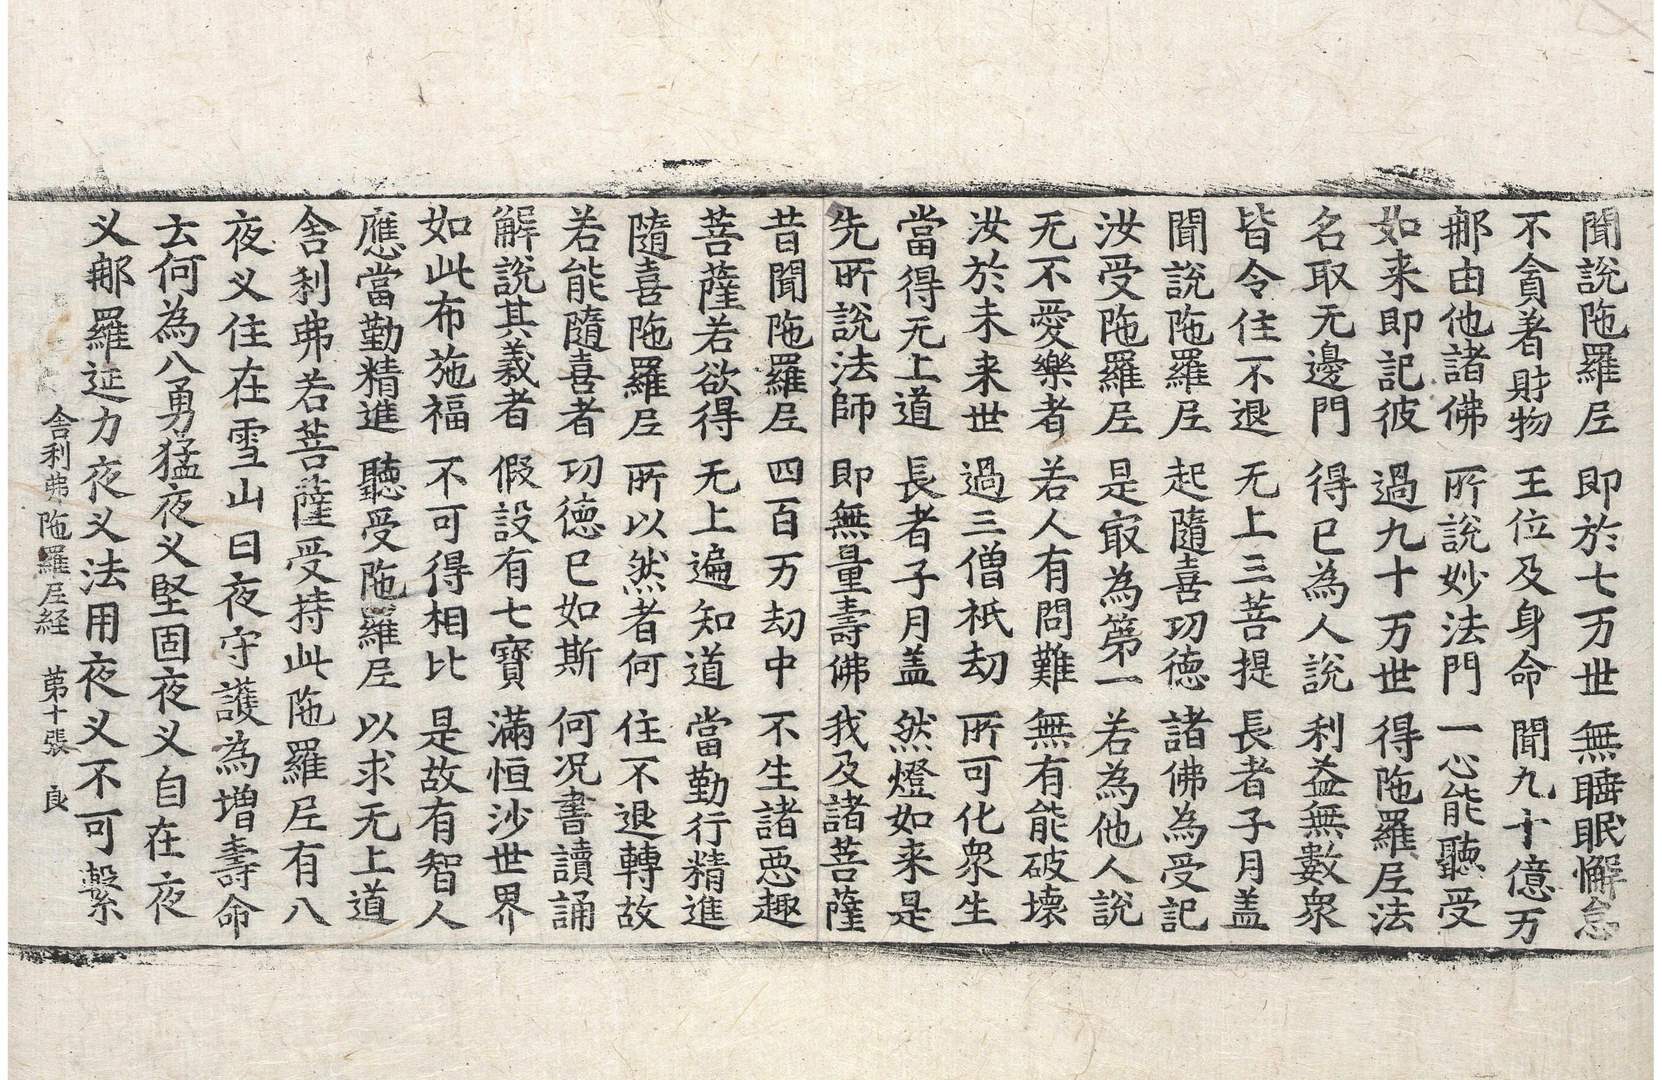 聞說陁羅𡰱 即於七万世 無睡眠懈怠
不貪著財物 王位及身命 聞九十億万
郍由他諸佛 所說妙法門 一心能聽受
如来即記彼 過九十万世 得陁羅𡰱法
名取无邊門 得已為人說 利益無數衆
皆令住不退 无上三菩提 長者子月盖
聞說陁羅𡰱 起隨喜㓛德 諸佛為受記
汝受陁羅𡰱 是㝡為第一 若為他人說
无不愛樂者 若人有問難 無有能破壊
汝於未来世 過三僧祇劫 所可化衆生
當得无上道 長者子月盖 然燈如来是
先所說法師 即無量壽佛 我及諸菩薩
昔聞陁羅𡰱 四百万劫中 不生諸惡趣
菩薩若欲得 无上遍知道 當勤行精進
隨喜陁羅𡰱 所以然者何 住不退轉故
若能隨喜者 㓛德已如斯 何况書讀誦
解說其義者 假設有七寶 滿恒沙世界
如此布施福 不可得相比 是故有智人
應當勤精進 聽受陁羅𡰱 以求无上道
舎利弗若菩薩受持此陁羅𡰱有八
夜义住在雪山日夜守護為増壽命
去何為八勇猛夜义堅固夜义自在夜
义郍羅延力夜义法用夜义不可繫
舎利弗陁羅𡰱経 第十張 良